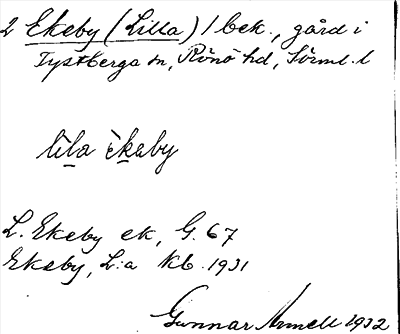 2 Ekeby (Lilla) / bek., gård i
Tystberga sn, Rönö hd, Sörml. l
lila ekaby
L. Ekeby ek, G. 67
Ekeby, L:a kb. 1931
Gunnar Armell 1932